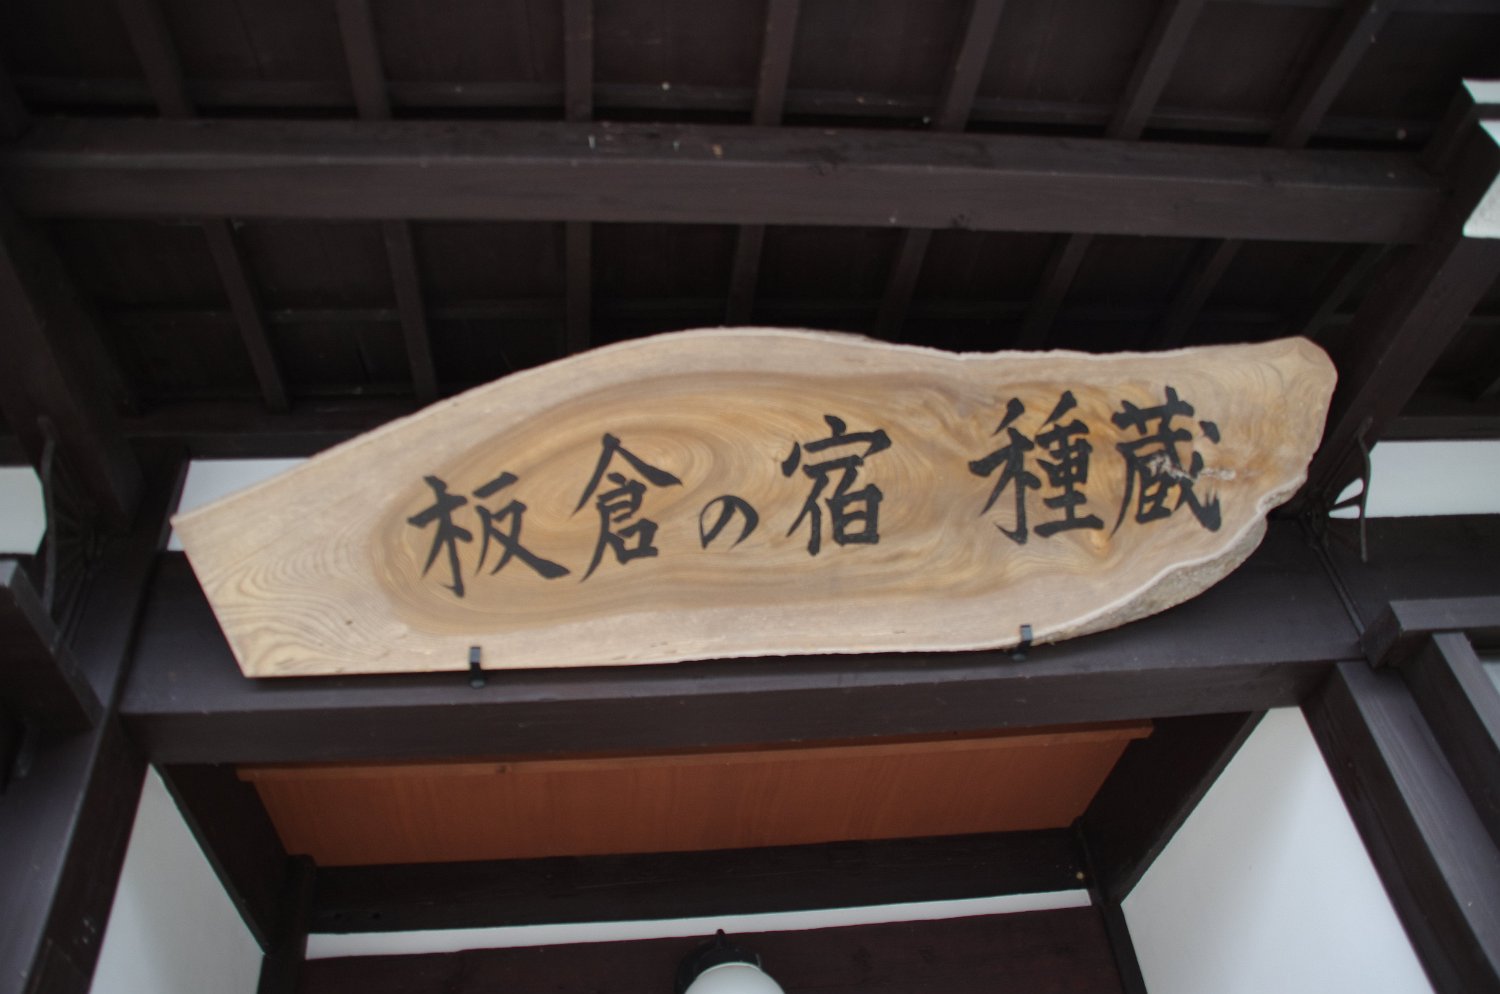 板倉の宿 種蔵